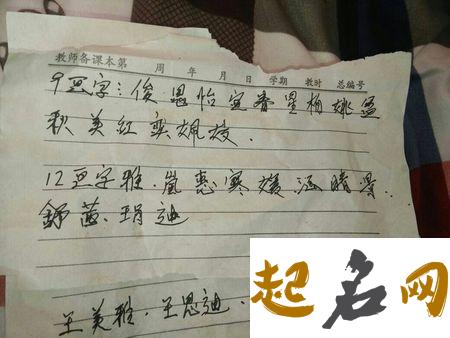 教师备课本第 周 年 月 日 学期 教时 总编号
9画字:俊思怡宣春星柏姚盈
秋美红奕飒
12画字雅.岚惠寒媛涵晴
舒茜、琄迪
王美雅.王思迪.
起名网